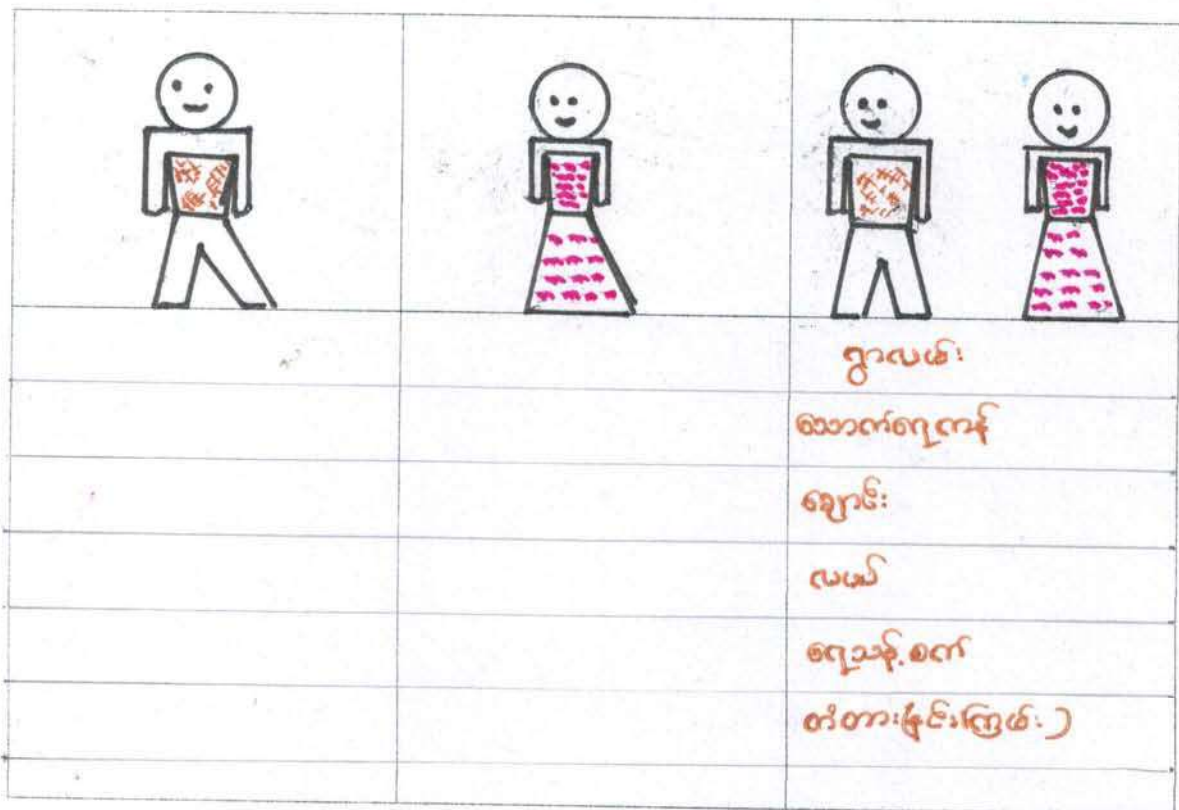 ရွာလမ်း
သောက်ရေကန်
ချောင်း
လယ်
ရေသန့်စက်
တံတား(မြင်းကြမ်း)